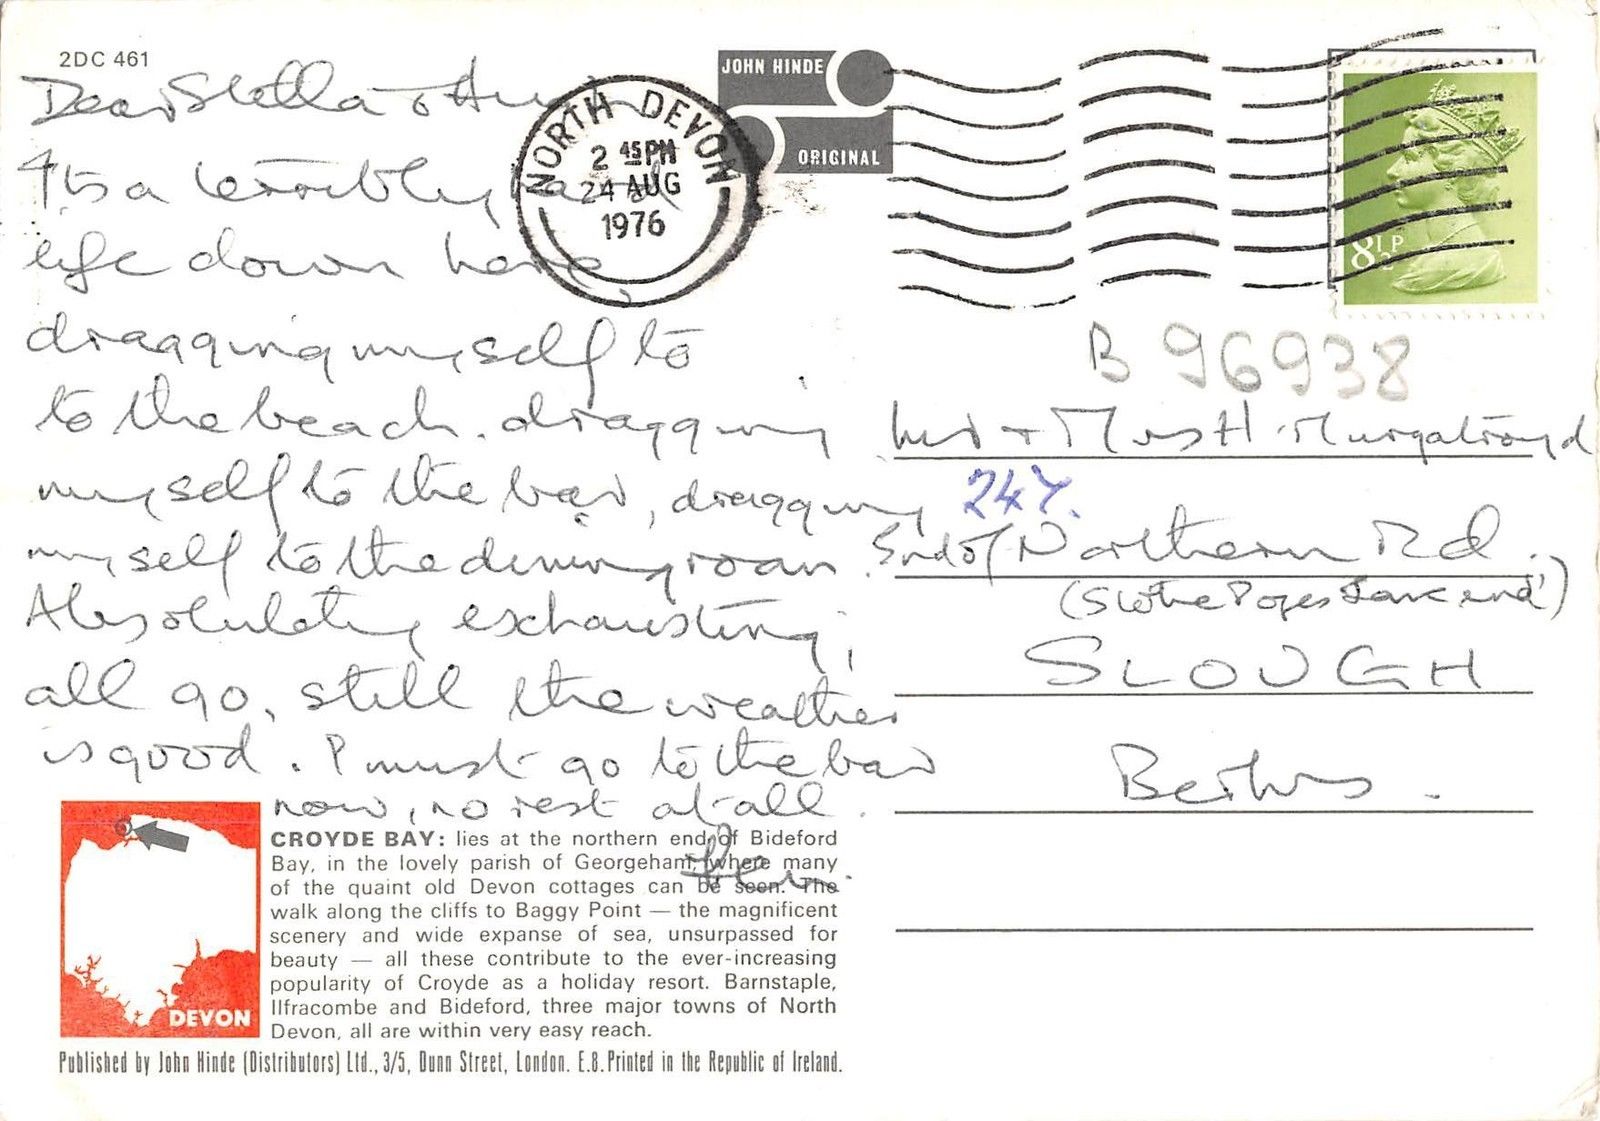 2DC 461
JOHN HINDE
ORIGINAL
NORTH DEVON
2 45PM
24 AUG
1976
8½P
Dear Stella +
It's a terribly
life down here,
dragging myself to
to the beach. dragging
myself to the bar, dragging
myself to the dining room.
Absolutely exhausting,
all go, still the weather
is good. I must go to the bar
now, no rest at all.
B 96938
Mr + Mrs H. Murgatroyd
247.
End of Northern Rd.
SLOUGH
Berks.
CROYDE BAY: lies at the northern end of Bideford
Bay, in the lovely parish of Georgeham, where many
of the quaint old Devon cottages can be seen. The
walk along the cliffs to Baggy Point — the magnificent
scenery and wide expanse of sea, unsurpassed for
beauty — all these contribute to the ever-increasing
popularity of Croyde as a holiday resort. Barnstaple,
Ilfracombe and Bideford, three major towns of North
Devon, all are within very easy reach.
DEVON
Published by John Hinde (Distributors) Ltd., 3/5, Dunn Street, London. E.8. Printed in the Republic of Ireland.